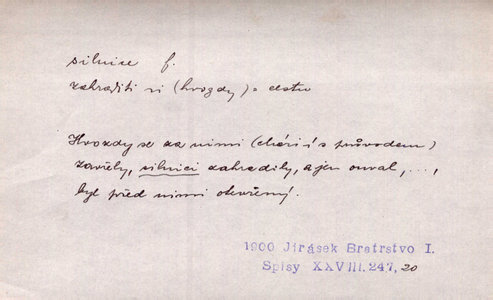 silnice f.
zahraditi si (hvozdy) = cestu
Hvozdy se za nimi (
s průvodem)
zavřely, silnici zahradily, a jen ouval, ...,
byl před nimi otevřený.
1900 Jirásek Bratrstvo I.
Spisy XXVIII.247, 20